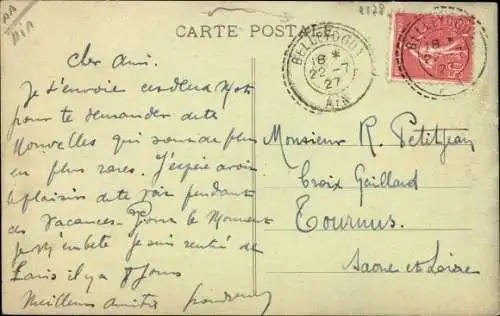 AA
AIA
2178
CARTE POSTALE
BELLEYDOUX
18 *
22-7
27
AIN
BELLEYDOUX
18 *
Cher Ami.
Je t'envoie ces deux Mots
pour te demander de tes
Nouvelles qui sont de plus
en plus rares. J'espère avoir
le plaisir de te voir pendant
ces Vacances. Pour le Moment
je m'embête je suis rentré de
Paris il y a 8 Jours
Meilleures amitiés
Monsieur R. Petitjean
Croix Guillard
Tournus.
Saone et Loire